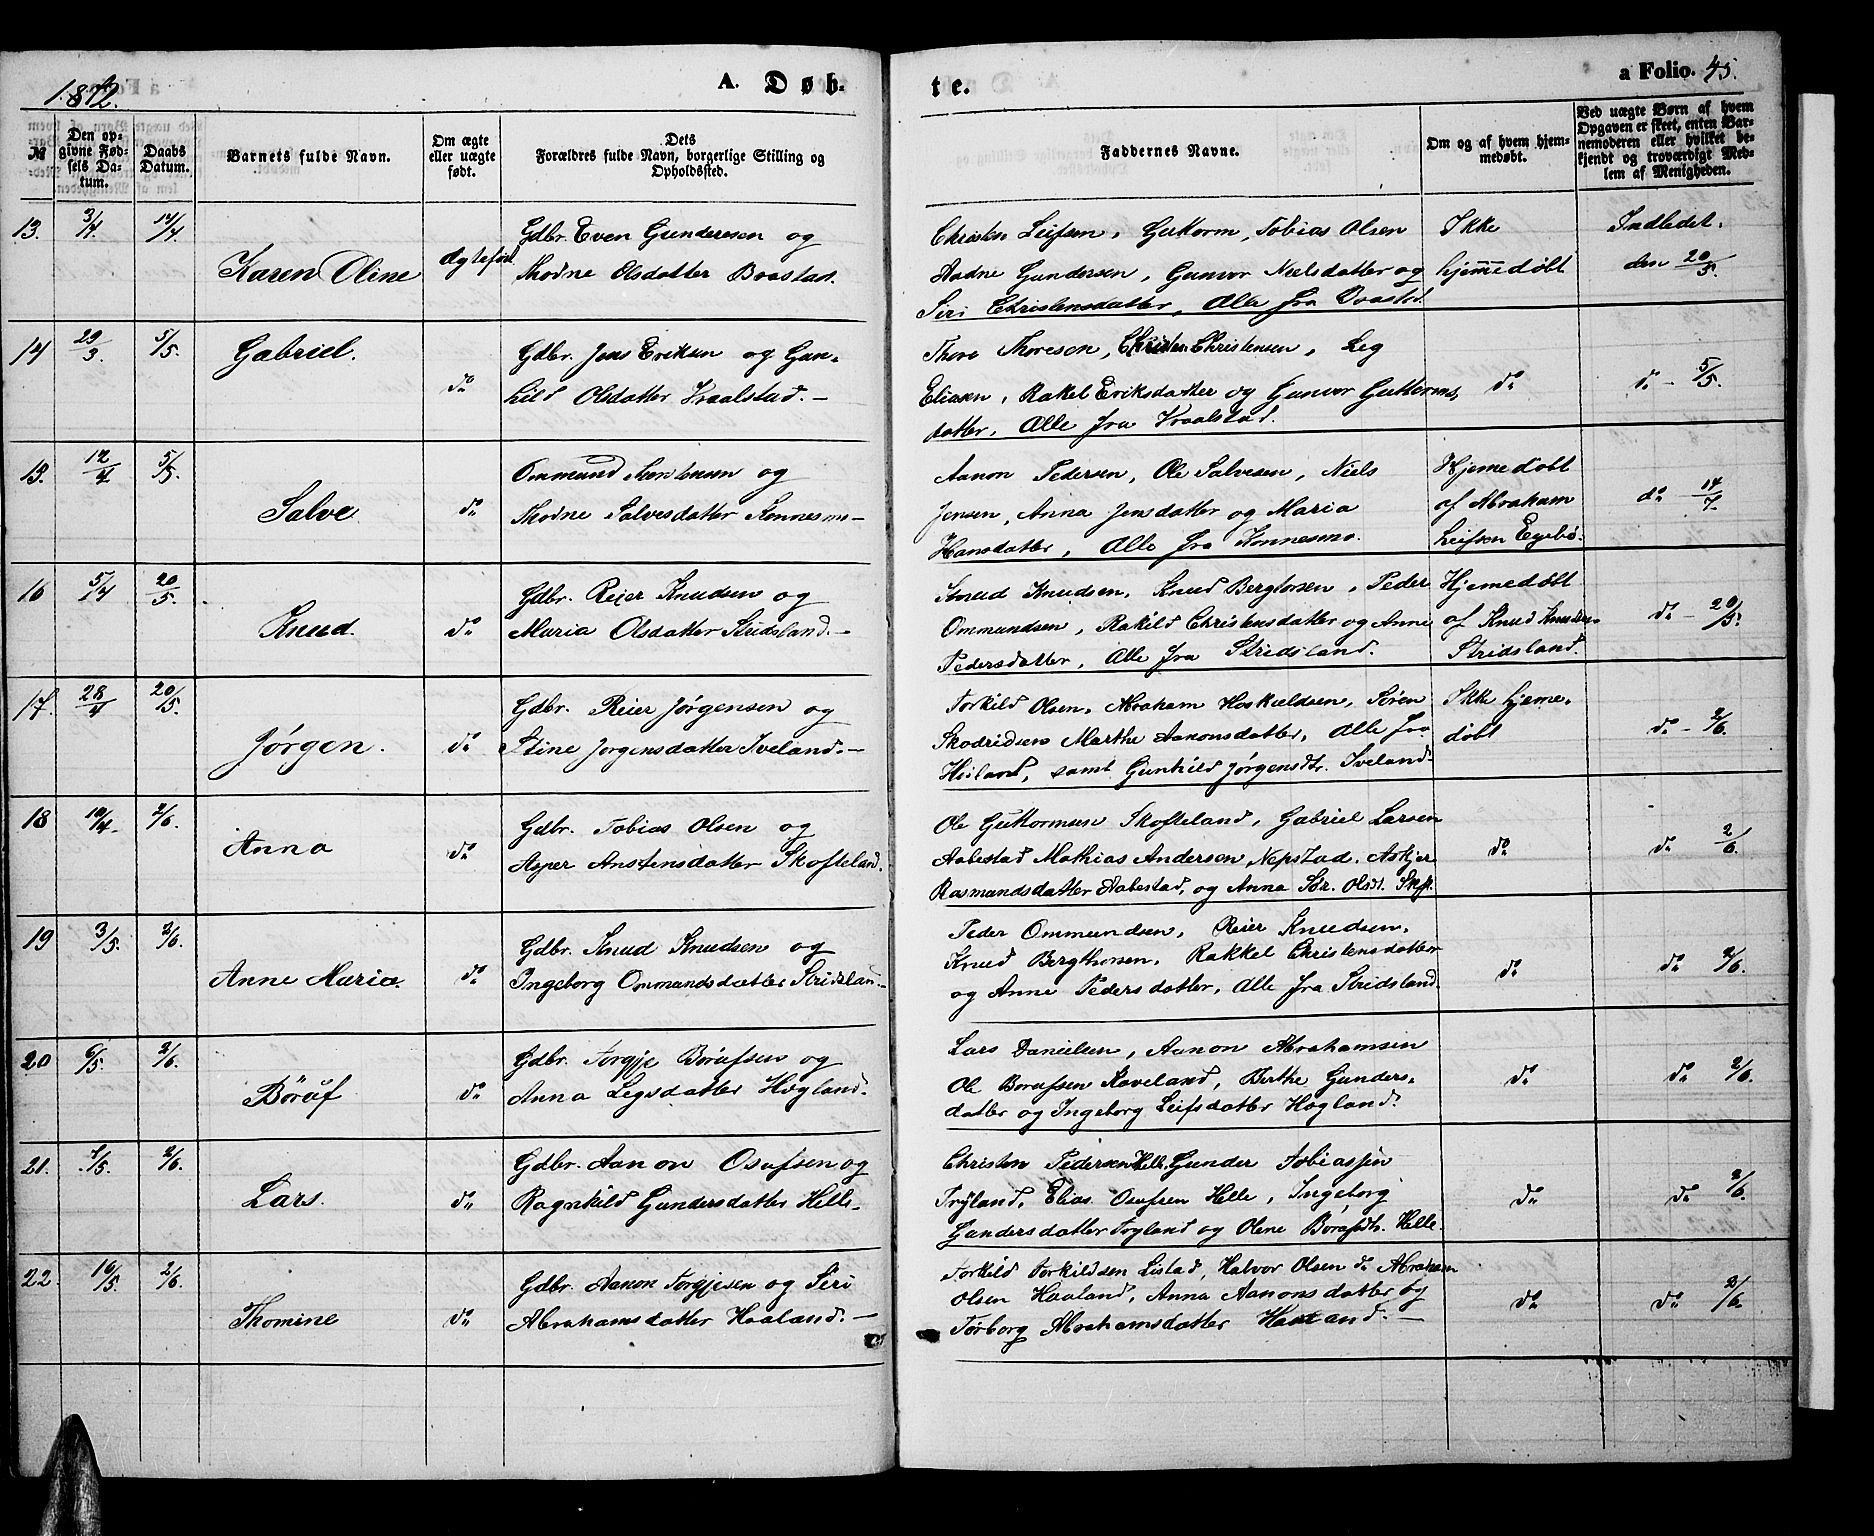 1872.
A. Døb-
te.
a Folio. 45.
№
Den op-
givne Fød-
sels Da-
tum.
Daabs
Datum.
Barnets fulde Navn.
Om ægte
eller uægte
født.
Dets
Forældres fulde Navn, borgerlige Stilling og
Opholdssted.
Faddernes Navne.
Om og af hvem hjem-
medøbt.
Ved uægte Børn af hvem
Opgaven er skeet, enten Bar-
nemoderen eller hvilket be-
kjendt og troværdigt Med-
lem af Menigheden.
13. 3/4 14/4
Karen Oline
ægtefød
Gdbr. Even Gundersen og
Thodne Olsdatter Brastad.
Christen Leifsen, Guttorm, Tobias Olsen
Aadne Gundersen, Gunvor Nielsdatter og
Siri Christensdatter, Alle fra Braastad.
Ikke
hjemmedøbt
Indledet.
den 20/5
14 29/3. 5/5.
Gabriel.
do
Gdbr. Jens Eriksen og Gun-
hild Olsdatter Vraalstad. -
Thore Thoresen, Christen Christensen, Leg
Eliasen, Rakel Eriksdatter og Gunvor Guttorms,
datter, Alle fra Vraalstad.
do
do - 5/5.
15. 12/4 5/5.
Salve
do
Ommund Mortensen og
Thodne Salvesdatter Konnesmo-
Aanon Pedersen, Ole Salvesen, Niels
Jensen, Anna Jensdatter og Maria
Hansdatter, Alle fra Konnesmo.
Hjemedøbt
af Abraham
Leifsen Egebø.
do 14/7
16 5/4 20/5.
Knud
do
Gdbr. Reier Knudsen og
Maria Olsdatter Stridsland. -
Knud Knudsen, Knud Bergtorsen, Peder
Ommundsen, Rakild Christensdatter og Anne
Pedersdatter, Alle fra Stridsland.
Hjemedøbt
af Knud Knudsen
Stridsland.
do - 20/5.
17. 28/4 20/5.
Jørgen.
do
Gdbr. Reier Jørgensen og
Stine Jorgensdatter Iveland. -
Torkild Olsen, Abraham Hoskieldsen, Søren
Skodridsen Marthe Aanonsdatter, Alle fra
Høiland, samt Gunhild Jørgensdtr. Iveland-
Ikke hjeme,
døbt
do - 2/6.
18 10/4- 2/6.
Anna
do
Gdbr. Tobias Olsen og
Asper Anstensdatter Skofteland.
Ole Guttormsen Skofteland, Gabriel Larsen
Aabestad Mathias Andersen, Nepstad. Askjer
Rasmundsdatter Aabestad, og Anna Sør. Olsdt. Skft.
do
do 2/6.
19 3/5. 2/6.
Anne Maria.
do
Gdbr. Knud Knudsen og
Ingeborg Ommundsdatter Stridsland-
Peder Ommundsen, Reier Knudsen,
Knud Bergthorsen, Rakkel Christensdatter
og Anne Pedersdatter, Alle fra Stridsland.
do
do 2/6.
20 6/5. 2/6.
Böruf
do
Gdbr. Torgje Børufsen og
Anna Legsdatter Høgland.
Lars Danielsen, Aanon Abrahamsen
Ole Borufsen Kaveland, Berthe Gunders,
datter og Ingeborg Leifsdatter Høgland.
do
do 2/6.
21. 4/5. 2/6.
Lars.
do
Gdbr. Aanon Osufsen og
Ragnhild Gundersdatter Helle.
Christen Pedersen Helle, Gunder Tobiassen
Tryland, Elias Osufsen Helle, Ingeborg
Gundersdatter Tryland og Olene Børufsdtr. Helle.
do
do 2/6.
22. 16/5. 2/6.
Thomine
do
Gdbr. Aanon Torgjesen og Siri
Abrahamsdatter Haaland. -
Torkild Torkildsen Listad, Halvor Olsen do Abraham
Olsen Haaland, Anna Aanonsdatter og
Torborg Abrahamsdatter Haaland. -
do
do 2/6.